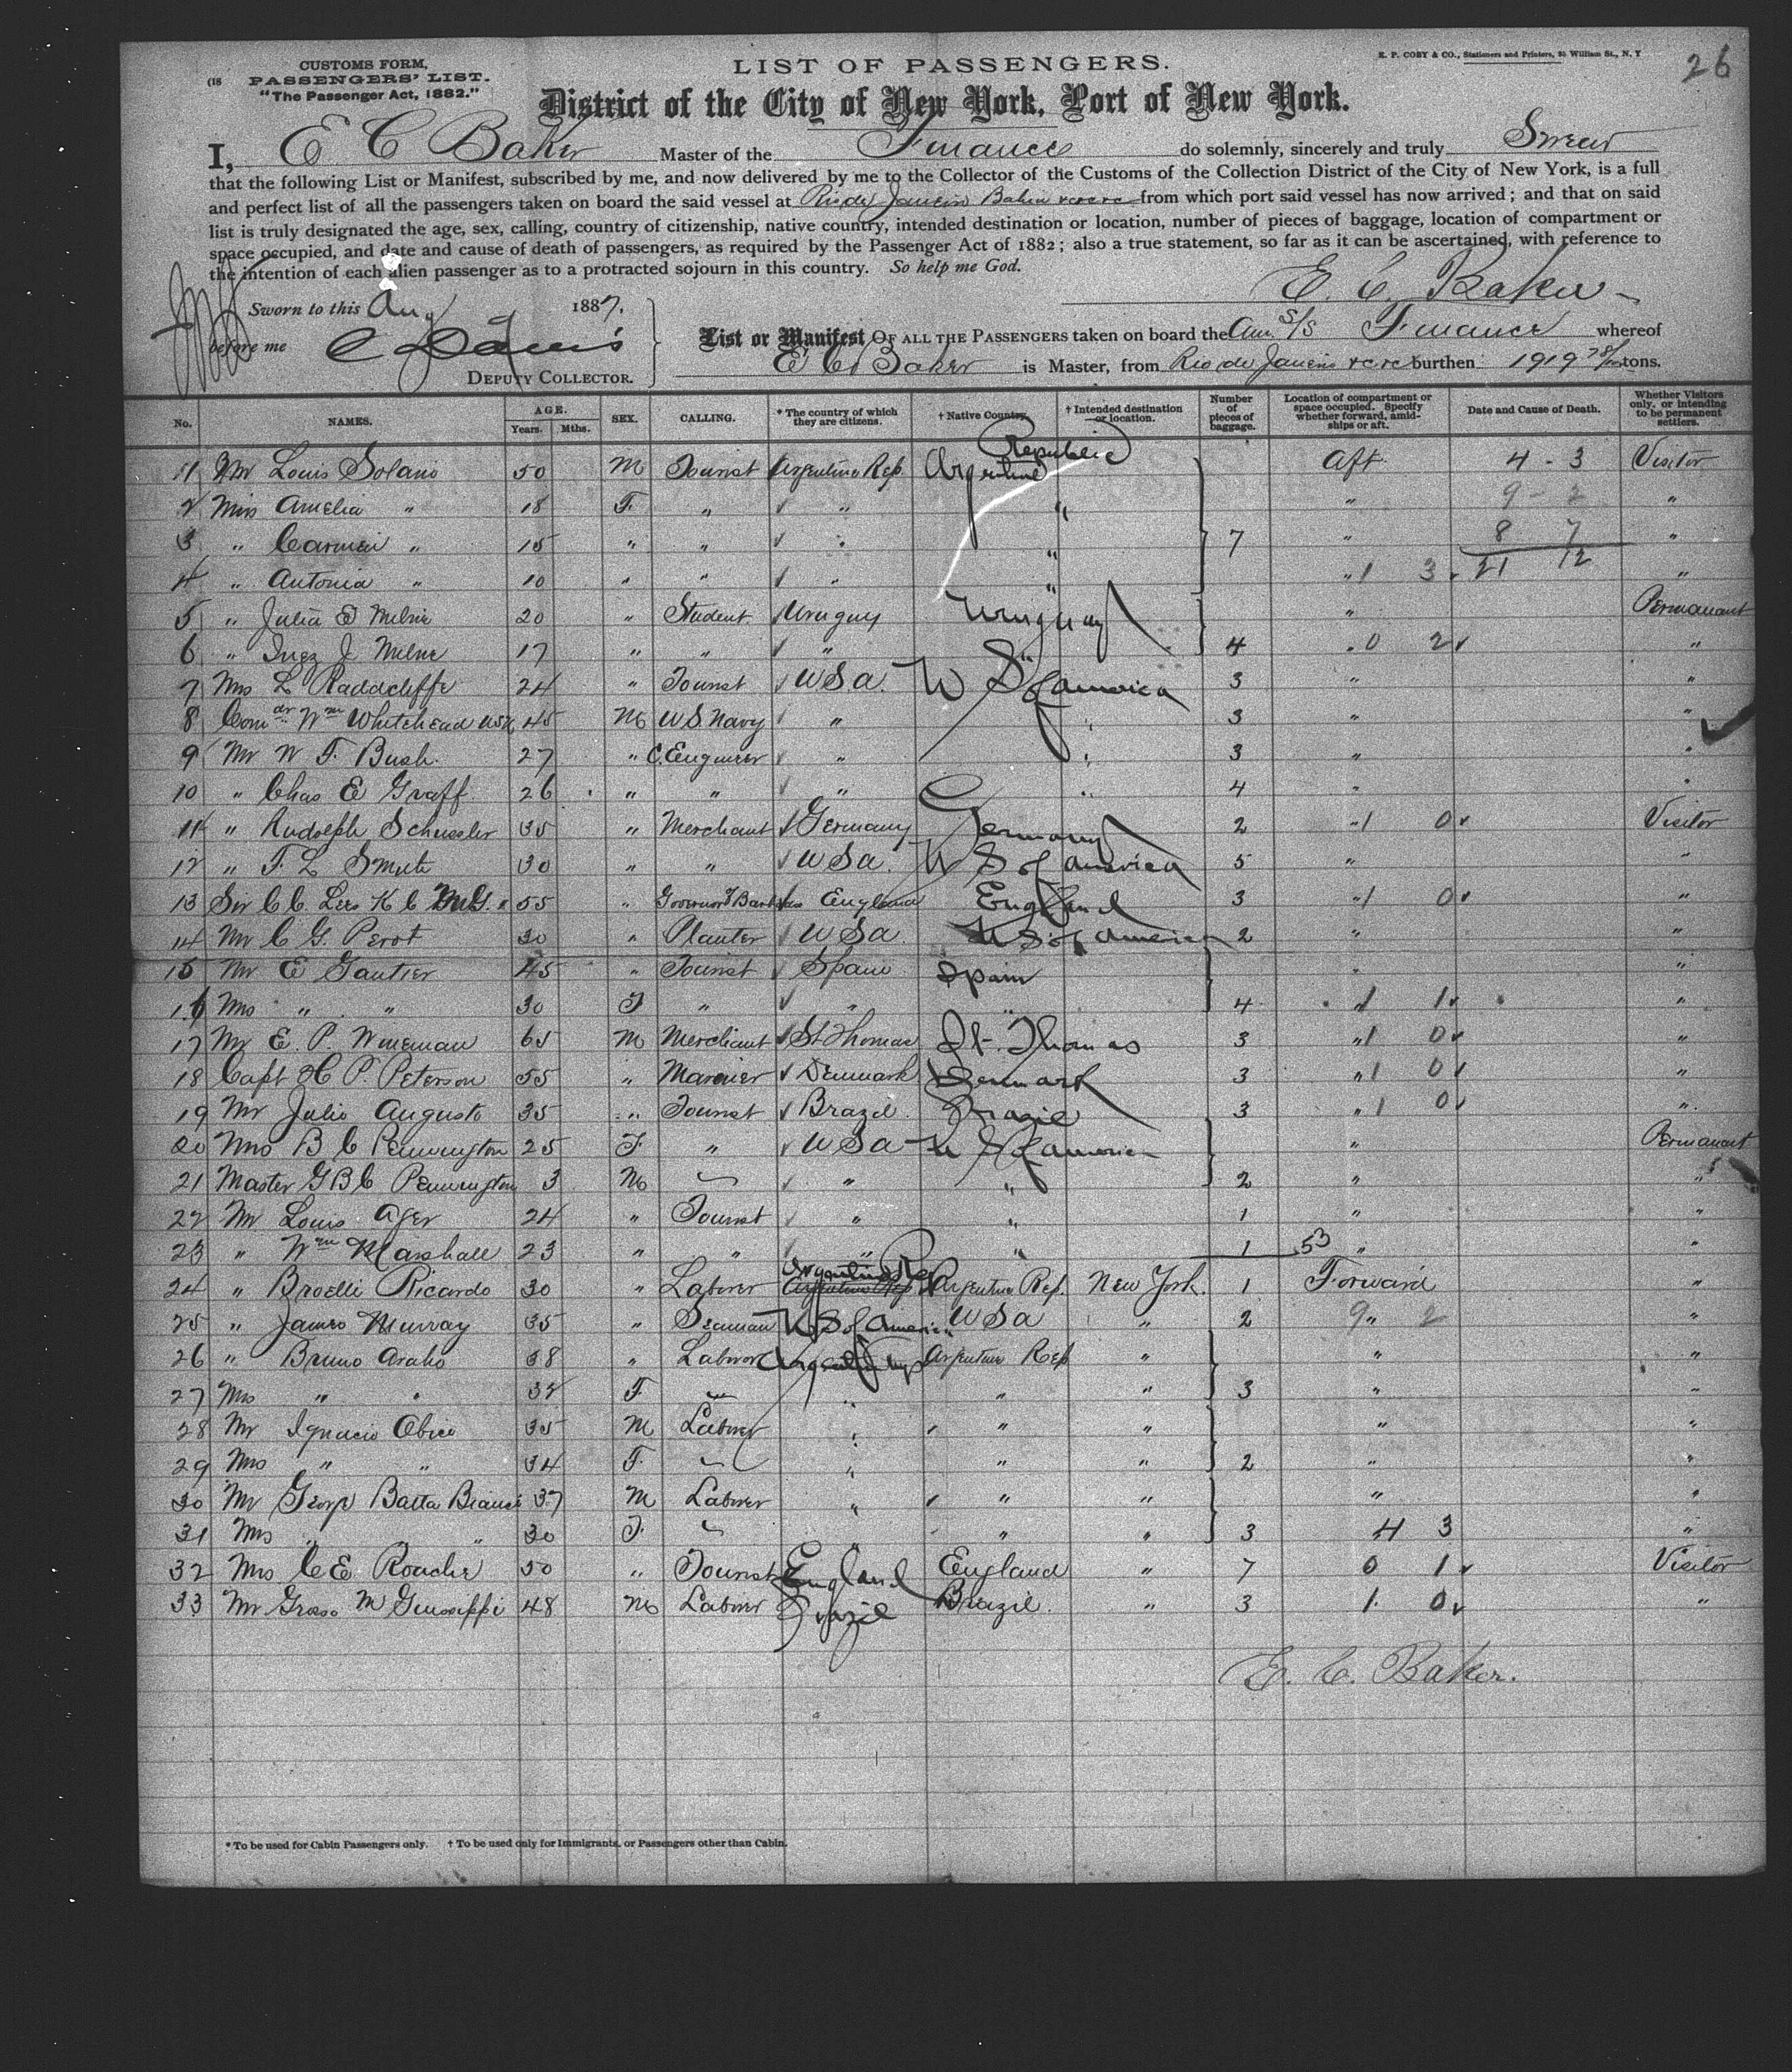 CUSTOMS FORM,
PASSENGERS' LIST.
"The Passenger Act, 1882."
(18
LIST OF PASSENGERS.
E. P. COBY & CO., Stationers and Printers, William St., N. Y
26
District of the City of New York, Port of New York.
I, E C Baker Master of the Finance do solemnly, sincerely and truly Swear
that the following List or Manifest, subscribed by me, and now delivered by me to the Collector of the Customs of the Collection District of the City of New York, is a full
and perfect list of all the passengers taken on board the said vessel at Rio de Janeiro Bahia from which port said vessel has now arrived; and that on said
list is truly designated the age, sex, calling, country of citizenship, native country, intended destination or location, number of pieces of baggage, location of compartment or
space occupied, and date and cause of death of passengers, as required by the Passenger Act of 1882; also a true statement, so far as it can be ascertained, with reference to
the intention of each alien passenger as to a protracted sojourn in this country. So help me God.
E. C. Baker
Sworn to this Aug 1887.
before me
DEPUTY COLLECTOR.
List or Manifest OF ALL THE PASSENGERS taken on board the Am. S/S Finance whereof
E C Baker is Master, from Rio de Janeiro burthen 1919 78/100 tons.
No. NAMES. AGE. Years. Mths. SEX. CALLING. * The country of which they are citizens. † Native Country. † Intended destination or location. Number of pieces of baggage. Location of compartment or space occupied. Specify whether forward, amidships or aft. Date and Cause of Death. Whether Visitors only, or intending to be permanent settlers.
1 Mr Louis Solano 50 M Tourist Argentine Rep Argentine Republic Aft 4 - 3 Visitor
2 Miss Amelia " 18 F. " " " " 9 - 2 "
3 " Carmen " 15 " " " " 7 " 8 7 "
4 " Antonia " 10 " " " " " 1 3 21 12 "
5 " Julia E Milne 20 " Student Uruguy Uruguay " Permanant
6 " Inez J Milne 17 " " " " 4 " 0 2 "
7 Mrs L Raddcliffe 24 " Tourist U S a U S of america 3 " "
8 Comdr Wm Whitehead USN 45 M U S Navy " " 3 " "
9 Mr W F. Bush. 27 " C. Engineer " " 3 " "
10 " Chas E Graff 26 " " " " 4 " "
11 " Rudolph Schussler 35 " Merchant Germany Germany 2 " 1 0 Visitor
12 " F. L Smith 30 " " U S a. U S of america 5 " "
13 Sir C C. Lees K C M G. 55 " Governor England England 3 " 1 0 "
14 Mr C G. Perot 30 " Planter U S a. U S of america 2 " "
15 Mr E Gautier 45 " Tourist Spain Spain " "
16 Mrs " " 30 F " " " 4 " 1 1 "
17 Mr E. P. Wineman 65 M Merchant St Thomas St. Thomas 3 " 1 0 "
18 Capt H P. Peterson 55 " Mariner Denmark Denmark 3 " 1 0 "
19 Mr Julio Augusto 35 " Tourist Brazil Brazil 3 " 1 0 "
20 Mrs B C Pennington 25 F " U S a U S of america " Permanant
21 Master G B C Pennington 3 M " " 2 " "
22 Mr Louis Ager 24 " Tourist " " 1 " "
23 " Wm Marshall 23 " " " " 1 53 " "
24 " Broelli Ricardo 30 " Laborer Argentine Rep Argentine Rep. New York. 1 Forward "
25 " James Murray 35 " Seaman U S of America U S a " 2 9 " 2 "
26 " Bruno Araho 38 " Laborer Argentine Rep Argentine Rep " " "
27 Mrs " " 32 F. " " " 3 " "
28 Mr Ignacio Obico 35 M Laborer " " " " "
29 Mrs " " 34 F. " " " 2 " "
30 Mr Georp Batta Biance 37 M Laborer " " " " "
31 Mrs " " 30 F. " " " 3 4 3 "
32 Mrs C E Roache 50 " Tourist England England " 7 0 1 Visitor
33 Mr Grosso M Giuseppi 48 M Laborer Brazil Brazil. " 3 1 0 "
E. C. Baker.
* To be used for Cabin Passengers only. † To be used only for Immigrants, or Passengers other than Cabin.